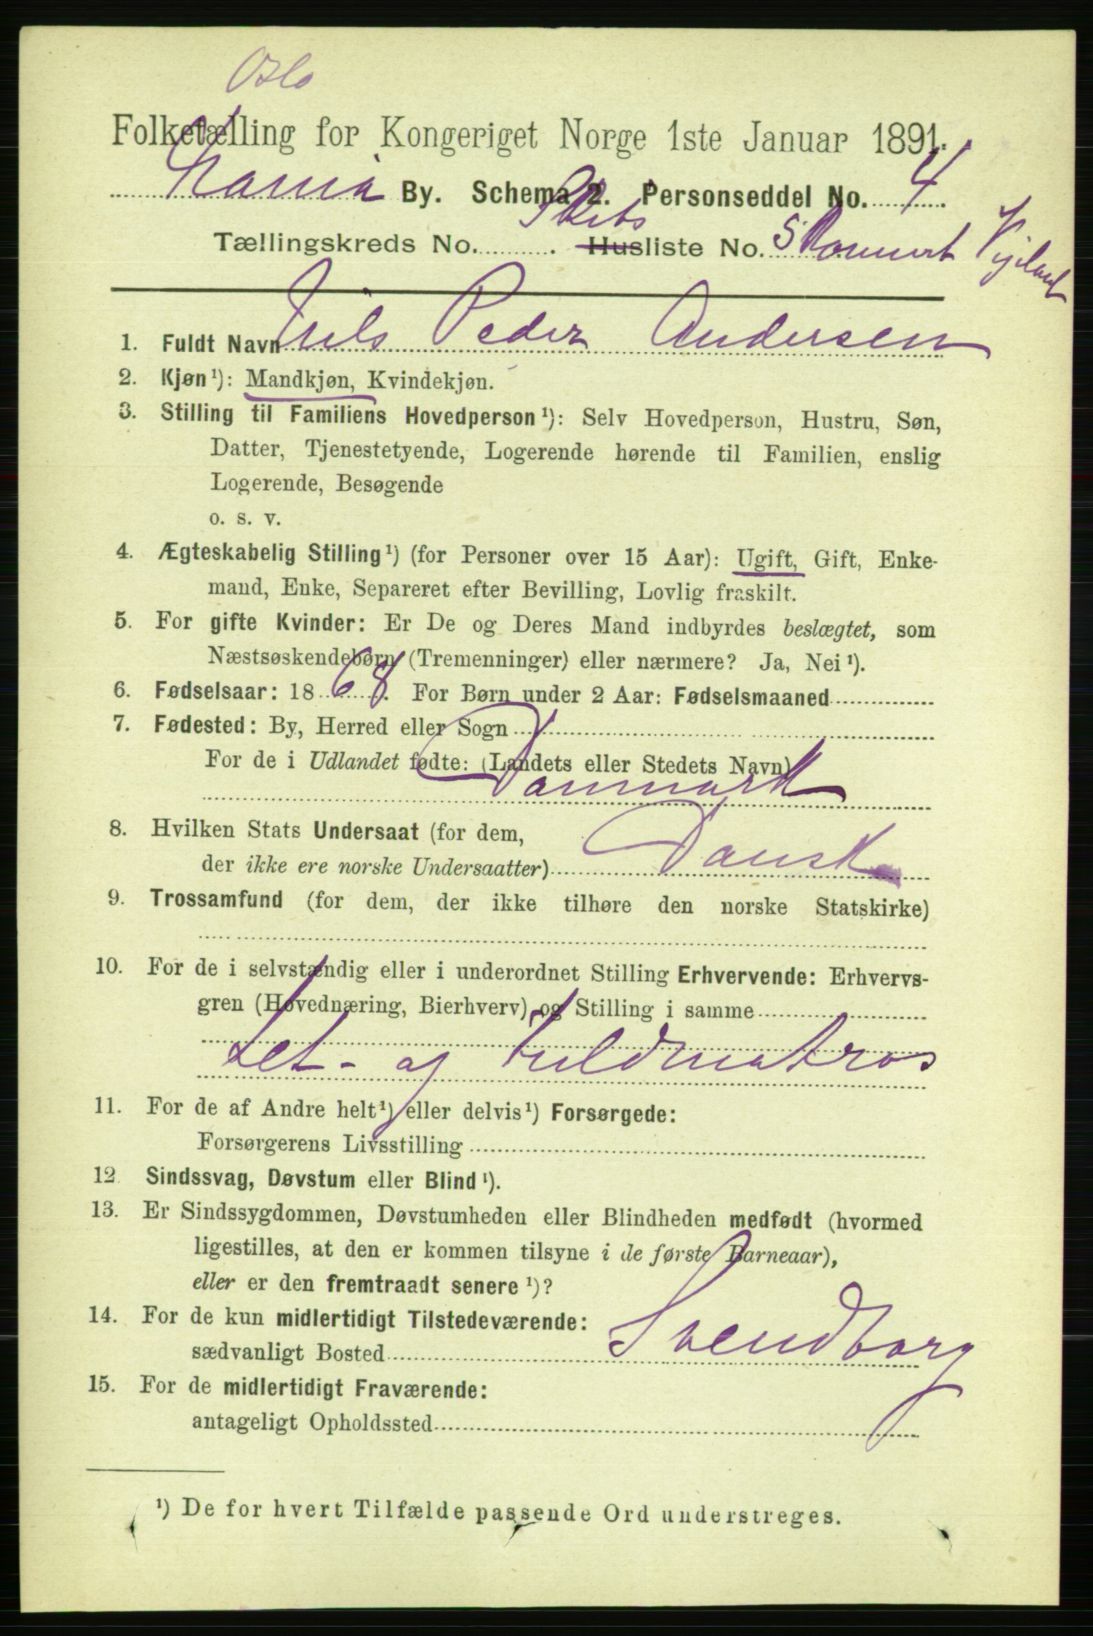 Oslo
Folketælling for Kongeriget Norge 1ste Januar 1891.
Krania By. Schema 2. Personseddel No. 4
Skibs
Tællingskreds No. . Husliste No. 5 Skonnert
1. Fuldt Navn Nils Peder Andersen
2. Kjøn¹): Mandkjøn, Kvindekjøn.
3. Stilling til Familiens Hovedperson¹): Selv Hovedperson, Hustru, Søn,
Datter, Tjenestetyende, Logerende hørende til Familien, enslig
Logerende, Besøgende
o. s. v.
4. Ægteskabelig Stilling¹) (for Personer over 15 Aar): Ugift, Gift, Enke-
mand, Enke, Separeret efter Bevilling, Lovlig fraskilt.
5. For gifte Kvinder: Er De og Deres Mand indbyrdes beslægtet, som
Næstsøskendebørn (Tremenninger) eller nærmere? Ja, Nei¹).
6. Fødselsaar: 1868. For Børn under 2 Aar: Fødselsmaaned
7. Fødested: By, Herred eller Sogn
For de i Udlandet fødte: (Landets eller Stedets Navn)
Danmark
8. Hvilken Stats Undersaat (for dem,
der ikke ere norske Undersaatter) Dansk
9. Trossamfund (for dem, der ikke tilhøre den norske Statskirke)
10. For de i selvstændig eller i underordnet Stilling Erhvervende: Erhvervs-
gren (Hovednæring, Bierhverv) og Stilling i samme
Let- og Fuldmatros
11. For de af Andre helt¹) eller delvis¹) Forsørgede:
Forsørgerens Livsstilling
12 Sindssvag, Døvstum eller Blind¹).
13. Er Sindssygdommen, Døvstumheden eller Blindheden medfødt (hvormed
ligestilles, at den er kommen tilsyne i de første Barneaar),
eller er den fremtraadt senere¹)?
14. For de kun midlertidigt Tilstedeværende:
sædvanligt Bosted Svendborg
15. For de midlertidigt Fraværende:
antageligt Opholdssted
¹) De for hvert Tilfælde passende Ord understreges.